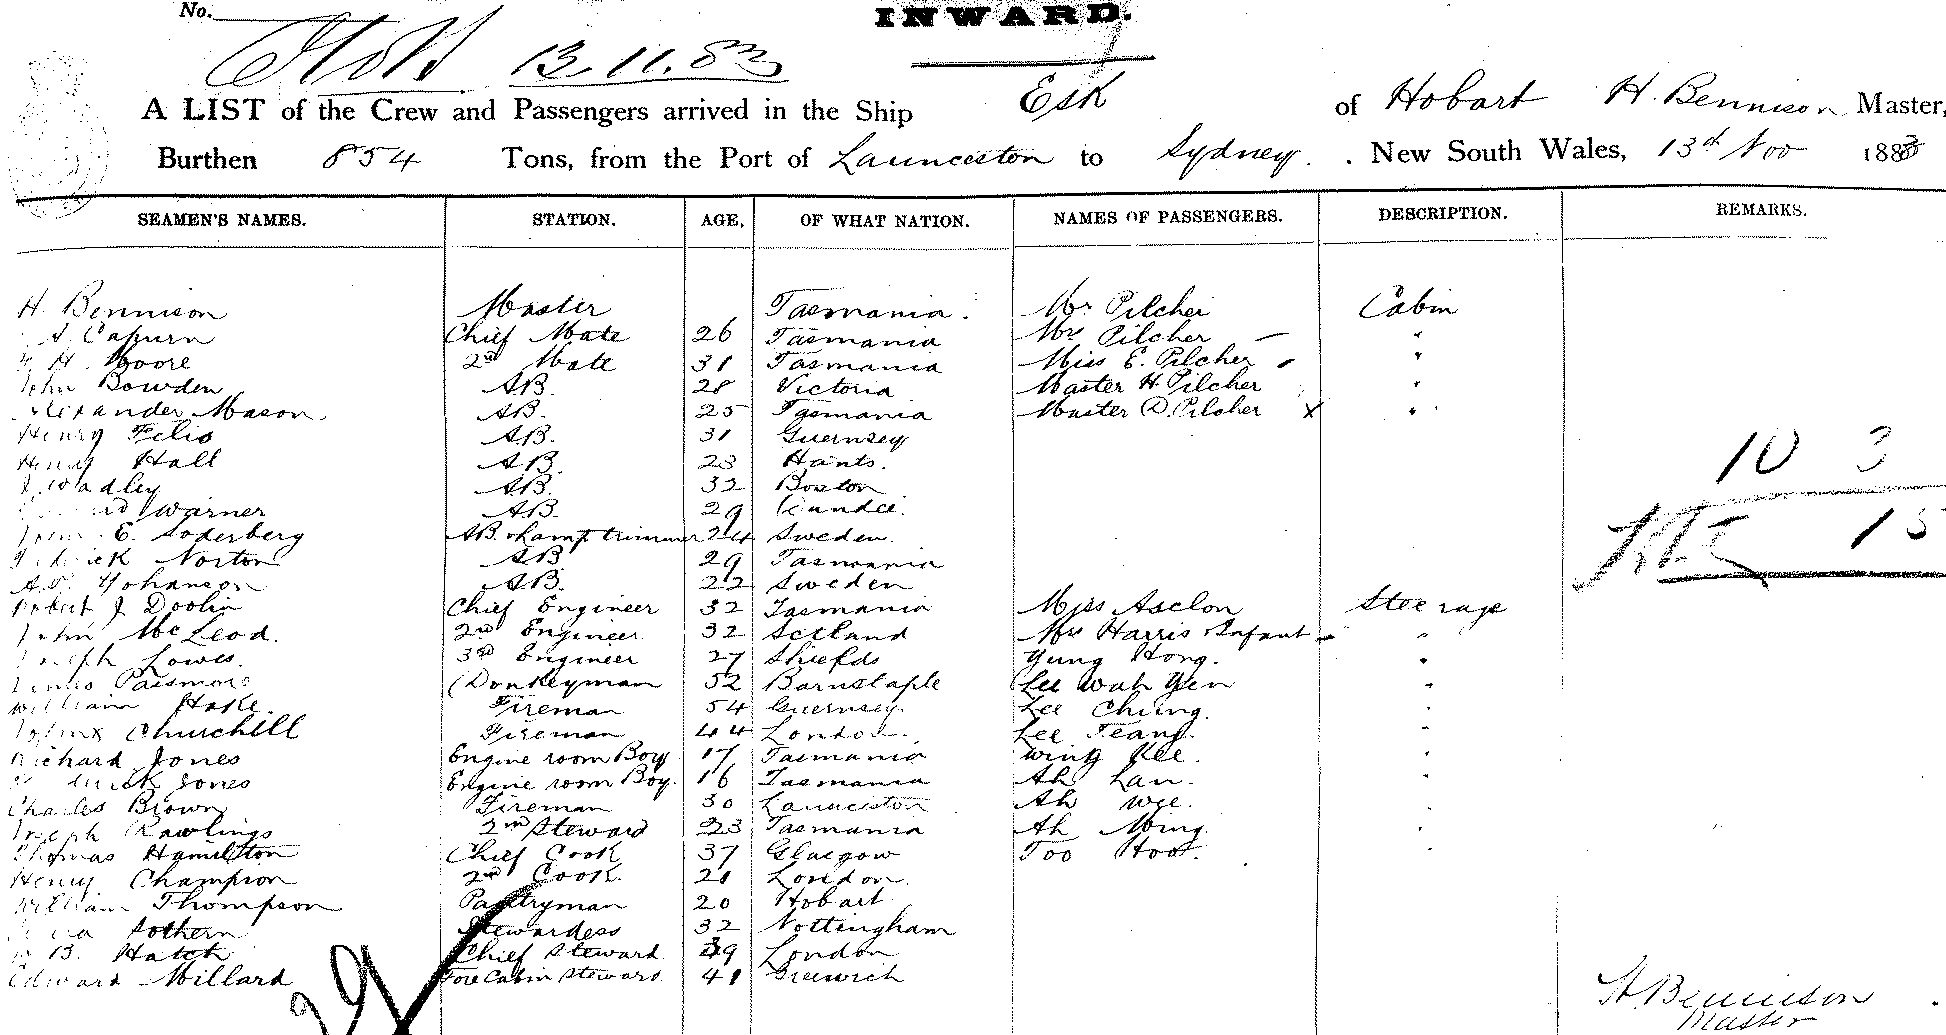 No.
INWARD.
13.11.83
A LIST of the Crew and Passengers arrived in the Ship Esk of Hobart H. Bennison Master,
Burthen 854 Tons, from the Port of Launceston to Sydney. New South Wales, 13th Nov 1883
SEAMEN'S NAMES. STATION. AGE, OF WHAT NATION. NAMES OF PASSENGERS. DESCRIPTION. REMARKS.
H. Bennison Master Tasmania. Mr Pilcher Cabin
Capurn Chief Mate 26 Tasmania Mrs Pilcher "
H. Moore 2nd Mate 31 Tasmania Miss E. Pilcher "
John Bowden AB. 28 Victoria Master H. Pilcher "
Alexander Mason. AB. 25 Tasmania Master D. Pilcher X "
Henry AB. 31 Guernsey
Henry Hall AB. 23 Hants. 10 3
AB. 32 Boston
Warner AB. 29 Dundee. 15
E. Soderberg AB. & Lamp trimmer 24 Sweden.
Norton AB 29 Tasmania
Yohanson AB. 22 Sweden
Robert J Doolin Chief Engineer 32 Tasmania Miss Asclon Steerage
John McLeod. 2nd Engineer 32 Mrs Harris & Infant "
Joseph Lowes. 3rd Engineer 27 Shields Yung Hong. "
Donkeyman 52 Barnstaple Lee Wah Yen "
William Hake. Fireman 54 Guernsey. Lee Chung. "
Churchill Fireman 44 London. Lee Teang. "
Richard Jones Engine room Boy 17 Tasmania Wing Kee. "
Jones Engine room Boy. 16 Tasmania Ah Lan. "
Charles Brown Fireman 30 Launceston Ah Wee. "
Joseph Rawlings 2nd Steward 23 Tasmania Ah Ming. "
Thomas Hamilton Chief Cook 37 Glasgow Too Hoo. "
Henry Champion 2nd Cook. 21 London.
William Thompson Pantryman 20 Hobart
Sothern Stewardess 32 Nottingham
B. Hatch Chief Steward 39 London
Edward Millard Fore Cabin Steward. 41 Greenwich
H. Bennison
Master